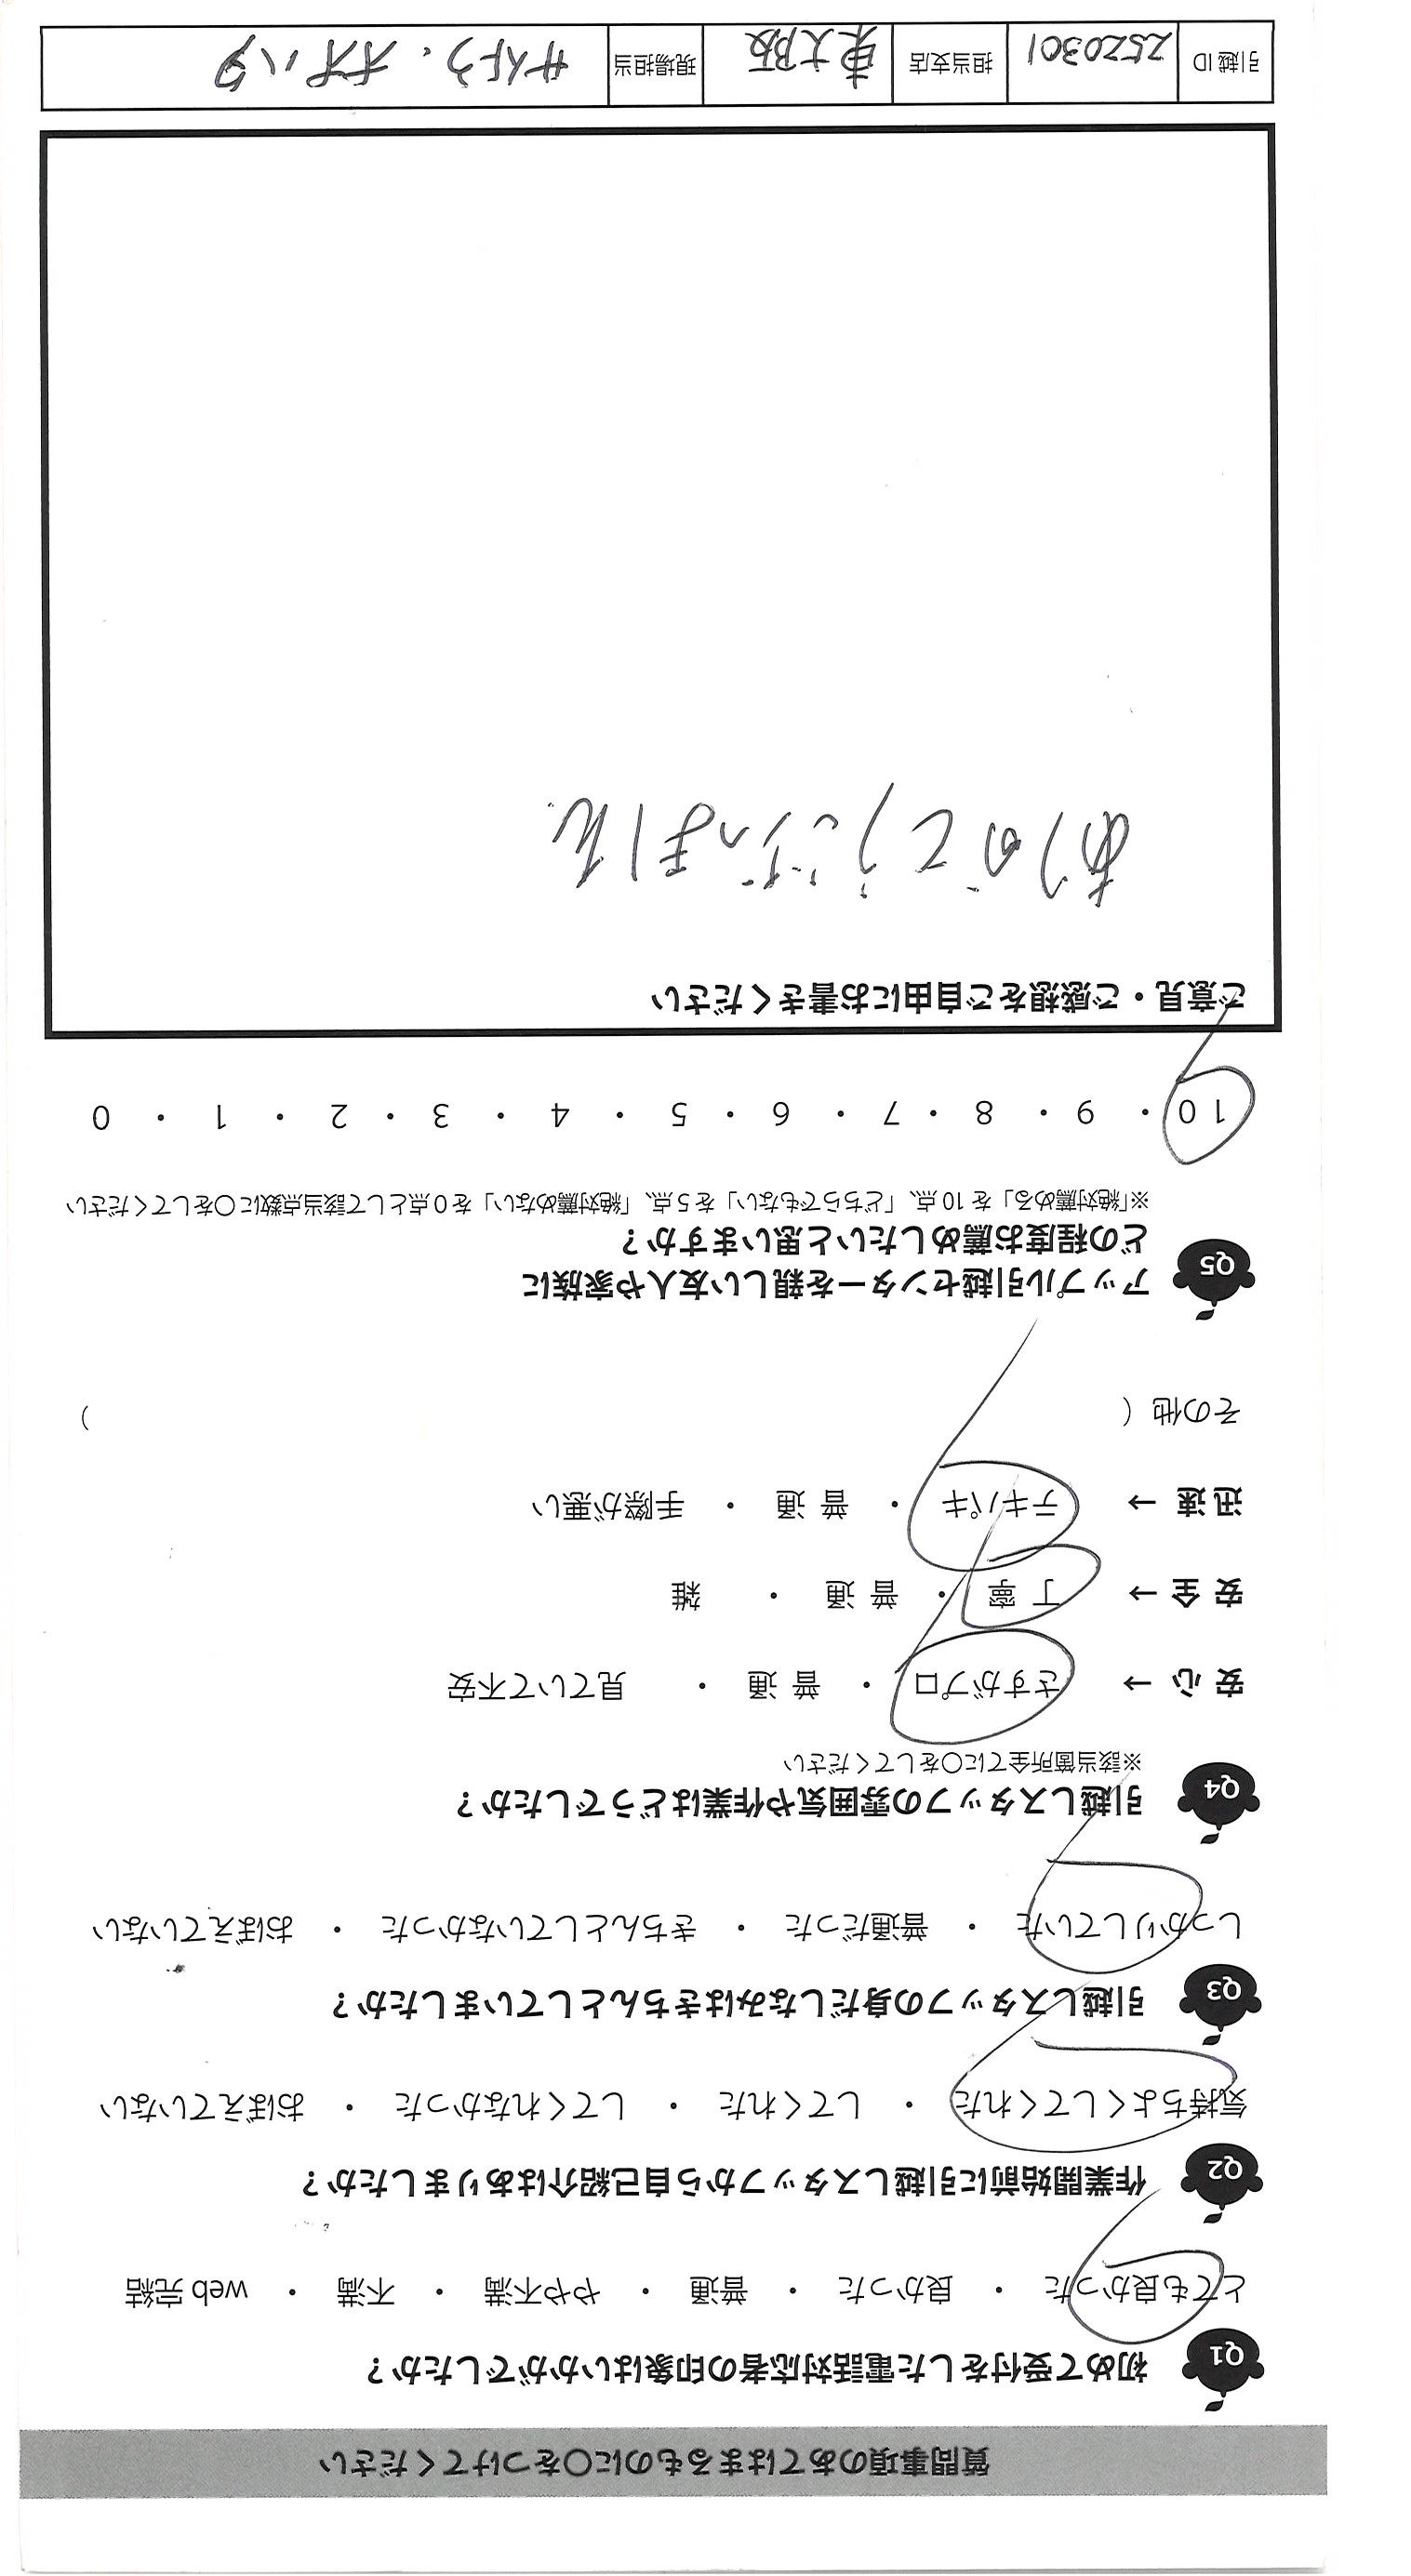 質問事項のあてはまるものに○をつけてください
Q1 初めて受付をした電話対応者の印象はいかがでしたか？
とても良かった ・ 良かった ・ 普通 ・ やや不満 ・ 不満 ・ web 完結
Q2 作業開始前に引越しスタッフから自己紹介はありましたか？
気持ちよくしてくれた ・ してくれた ・ してくれなかった ・ おぼえていない
Q3 引越しスタッフの身だしなみはきちんとしていましたか？
しっかりしていた ・ 普通だった ・ きちんとしていなかった ・ おぼえていない
Q4 引越しスタッフの雰囲気や作業はどうでしたか？
※該当箇所全てに○をしてください
安 心 → さすがプロ ・ 普 通 ・ 見ていて不安
安 全 → 丁 寧 ・ 普 通 ・ 雑
迅 速 → テキパキ ・ 普 通 ・ 手際が悪い
その他 （ ）
Q5 アップル引越センターを親しい友人や家族に
どの程度お薦めしたいと思いますか？
※「絶対薦める」を 10 点、「どちらでもない」を 5 点、「絶対薦めない」を 0 点として該当点数に○をしてください
10 ・ 9 ・ 8 ・ 7 ・ 6 ・ 5 ・ 4 ・ 3 ・ 2 ・ 1 ・ 0
ご意見・ご感想をご自由にお書きください
ありがとうございました
引越 ID 2520301 担当支店 東大阪 現場担当 サイトう・オオハタ